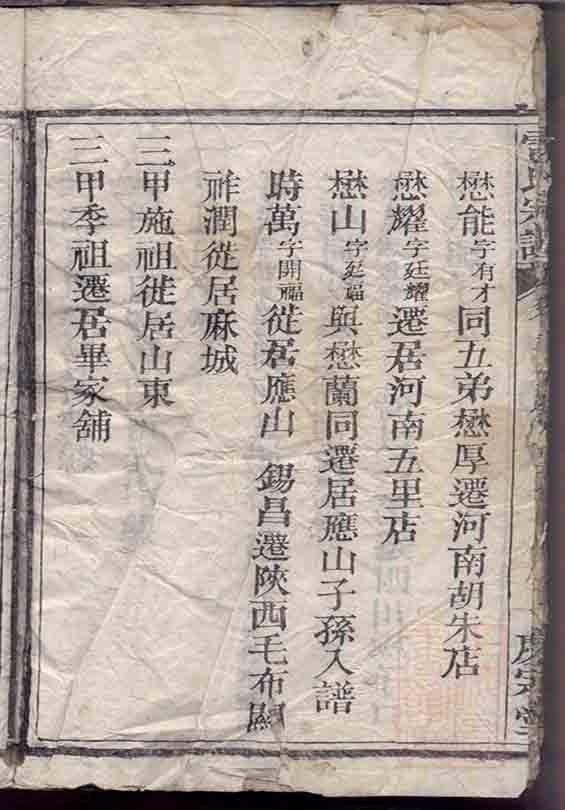 懋能字有才同五弟懋厚遷河南胡朱店
懋耀字廷耀遷居河南五里店
懋山字廷福與懋蘭同遷居應山子孫入譜
時萬字開福徙居應山 錫昌遷陝西毛布關
祚潤徙居麻城
三甲施祖徙居山東
三甲季祖遷居畢家舖
氏宗譜
慶宗堂